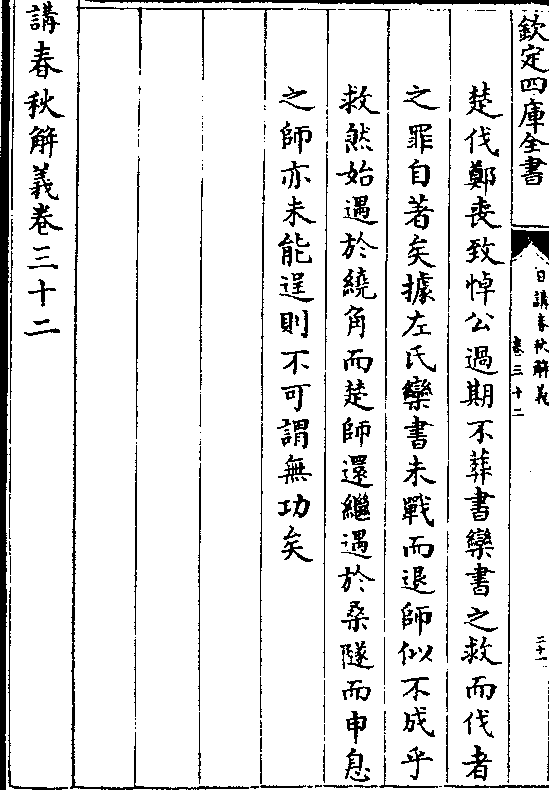 欽定四庫全書
日講春秋解義
卷三十二
二十一
楚伐鄭喪致悼公過期不葬書欒書之救而伐者
之罪自著矣據左氏欒書未戰而退師似不成乎
救然始遇於繞角而楚師還繼遇於桑隧而申息
之師亦未能逞則不可謂無功矣
講春秋解義卷三十二